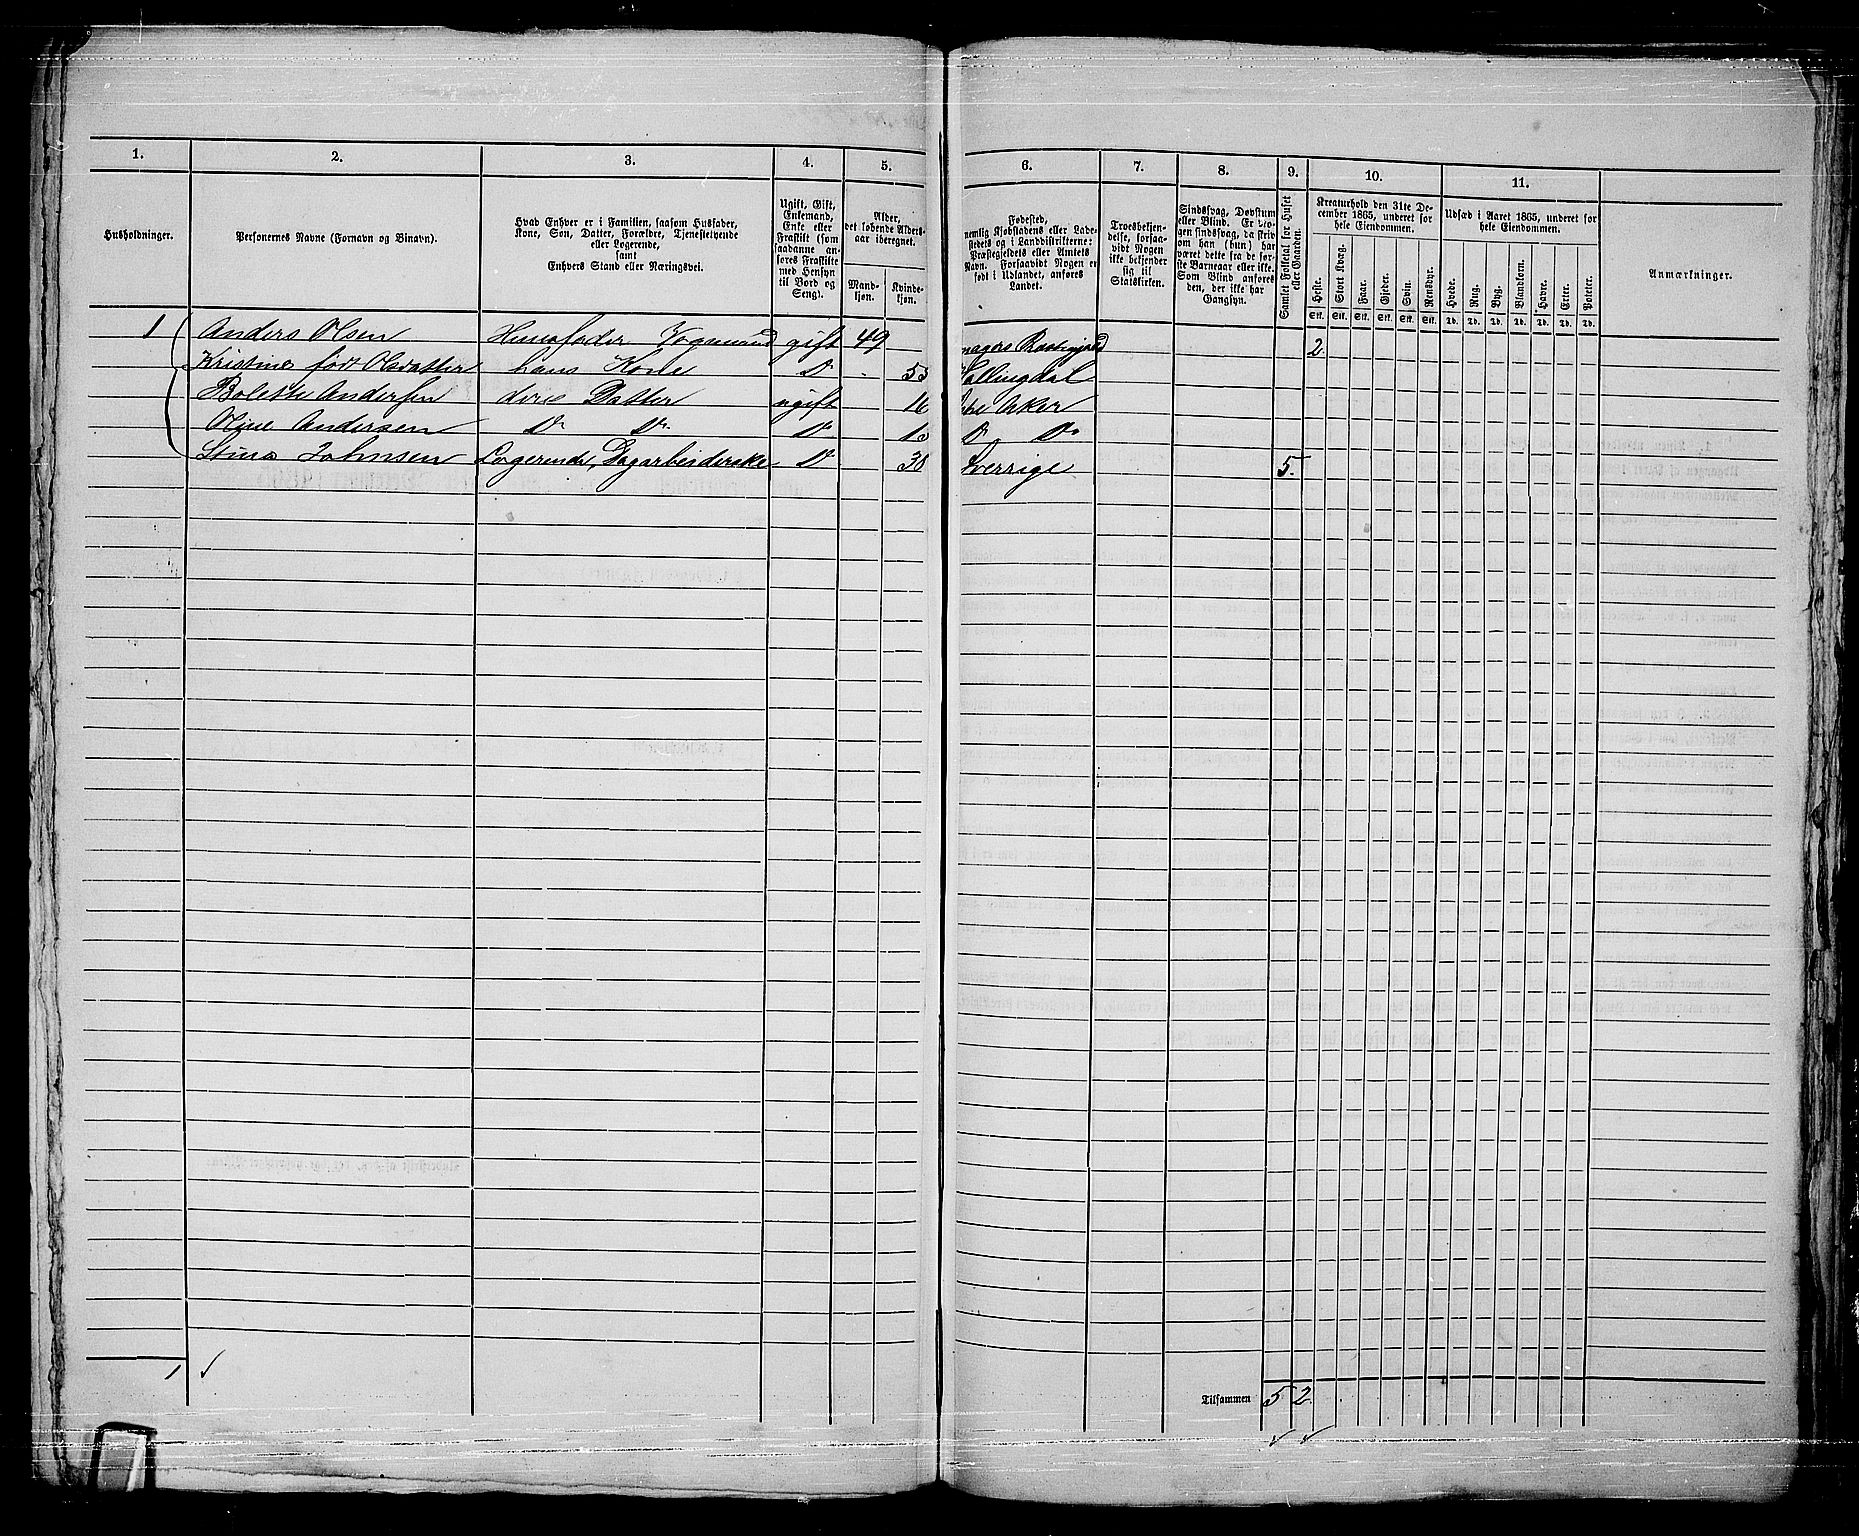 1. 2. 3. 4. 5. 6. 7. 8. 9. 10. 11.
Husholdninger.
Personernes Navne (Fornavn og Binavn).
Hvad Enhver er i Familien, saasom Husfader,
Kone, Søn, Datter, Forældre, Tjenestetyende
eller Logerende,
samt
Enhvers Stand eller Næringsvei.
Ugift, Gift,
Enkemand,
Enke eller
Fraskilt (som
saadanne an-
føres Fraskilte
med Hensyn
til Bord og
Seng).
Alder,
det løbende Alders-
aar iberegnet.
Mand-
kjøn.
Kvinde-
kjøn.
Fødested,
nemlig Kjøbstadens eller Lade-
stedets og i Landdistrikterne:
Præstegjeldets eller Amtets
Navn. Forsaavidt Nogen er
født i Udlandet, anføres
Landet.
Troesbekjen-
delse, forsaa-
vidt Nogen
ikke bekjender
sig til
Statskirken.
Sindssvag, Døvstum
eller Blind. Er No-
gen sindssvag, da skriv
om han (hun) har
været dette fra de før-
ste Barneaar eller ikke.
Som Blind anføres
den, der ikke har
Gangsyn.
Samlet Folketal for Huset
eller Gaarden.
Kreaturhold den 31te De-
cember 1865, underet for
hele Eiendommen.
Heste. Stort Kvæg. Faar. Gjeder. Svin. Rensdyr.
Stk. Stk. Stk. Stk. Stk. Stk.
Udsæd i Aaret 1865, underet for
hele Eiendommen.
Hvede. Rug. Byg. Blandkorn. Havre. Erter. Poteter.
Td. Td. Td. Td. Td. Td. Td.
Anmærkninger.
1 Anders Olsen Huusfader Vognmand gift 49 nagers Præstegjæld 2
Kristine født Olsdatter hans Kone Do 53 Hallingdal
Bolette Andersen deres Datter ugift 16 Aker
Oline Andersen Do Do Do 13 Do Do
Stina Johnsen Logerende, Dagarbeiderske Do 38 Sverrige 5.
1
Tilsammen 5 2